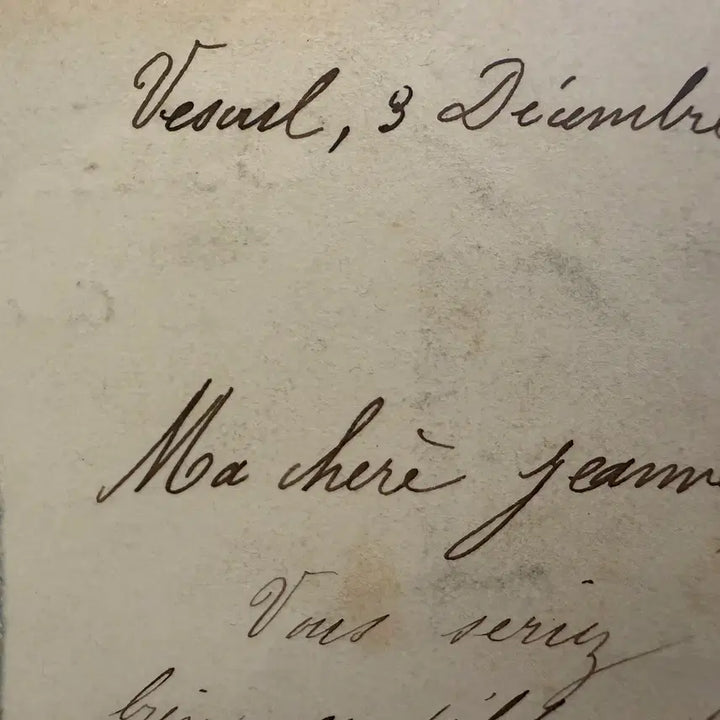 Vesoul, 3 Décembre
Ma cherè jeann
Vous seriez
bien